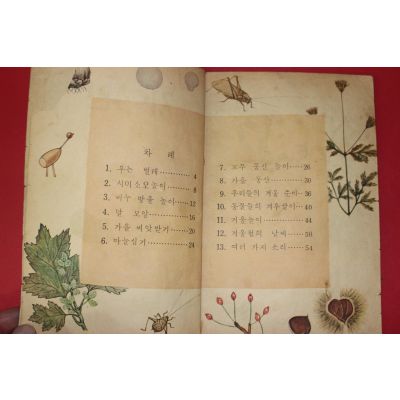 차 례
1. 우는 벌레 ………… 4
2. 식미소모놀이 ……… 8
3. 비누 방울 놀이 …… 12
4. 달 모양 ………… 16
5. 가을 씨앗받기 …… 20
6. 마늘심기 ………… 24
7. 고무 풍선 놀이 …… 26
8. 가을 동산 ………… 30
9. 우리들의 겨울 준비 … 36
10. 동물들의 겨우살이 … 40
11. 겨울놀이 ………… 44
12. 겨울철의 날씨 …… 48
13. 여러 가지 소리 …… 54